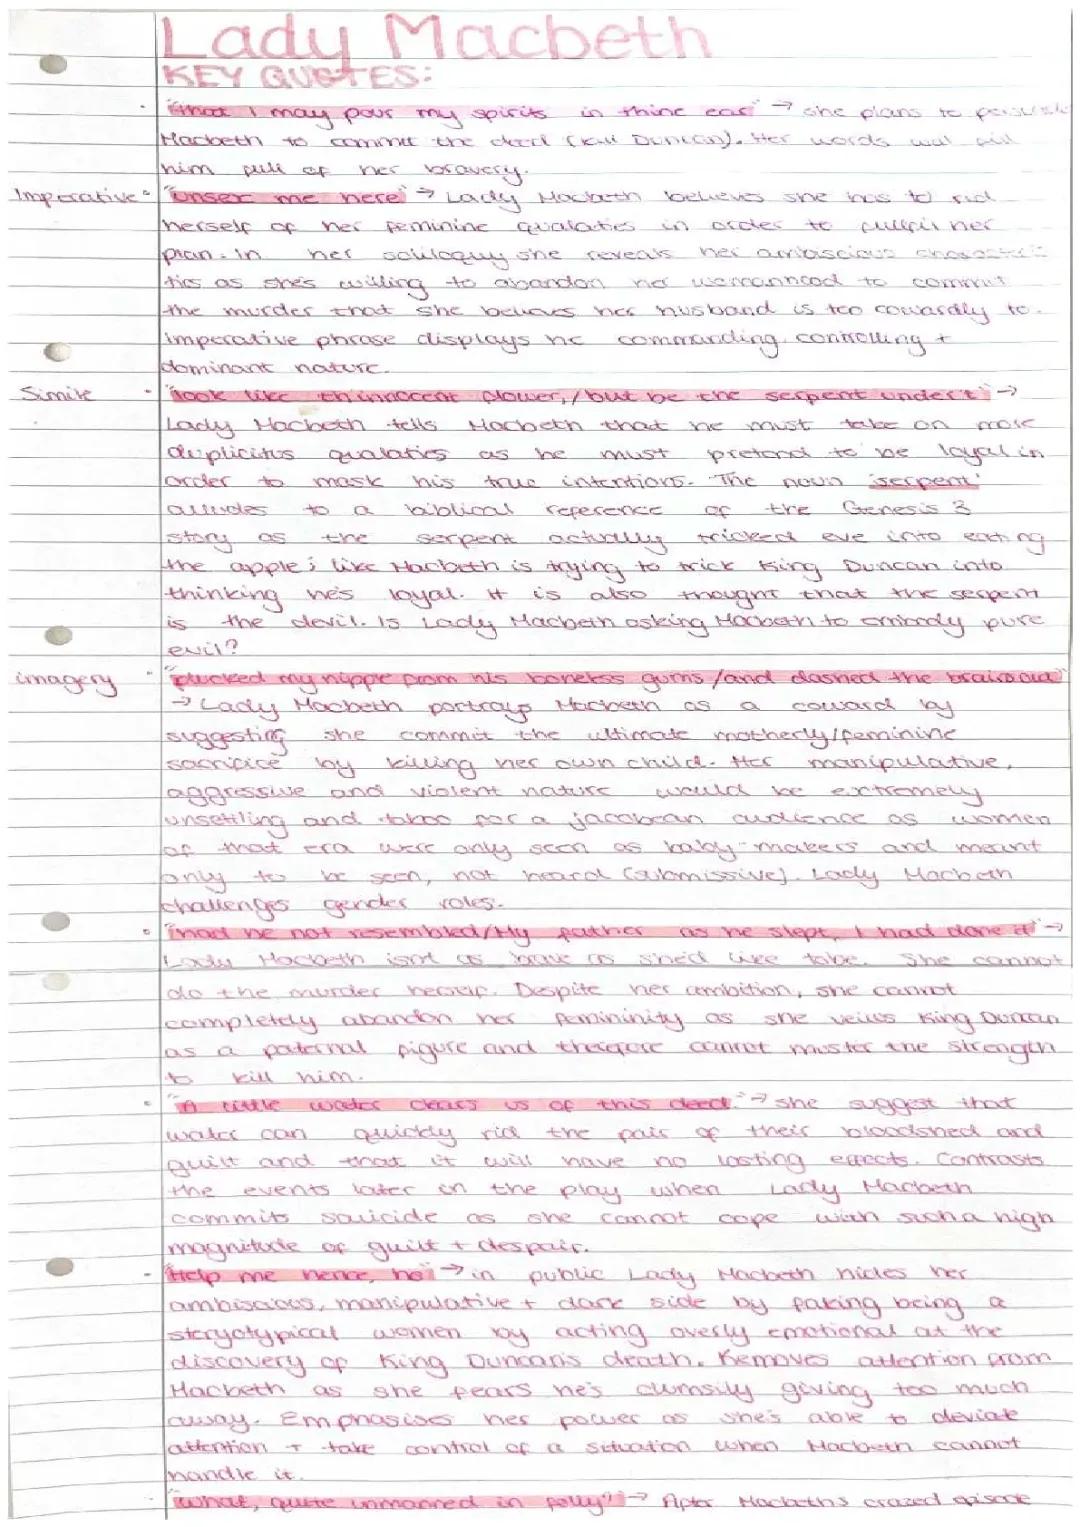 Lady Macbeth
KEY QUOTES:
"that I may pour my spirits in thine ear" → she plans to
Macbeth to commit the deed (kill Duncan). Her words will fill
him full of her bravery.
Imperative "unsex me here" → Lady Macbeth believes she has to rid
herself of her feminine qualaties in order to fulfil her
plan. In her soliloquy she reveals her ambiscious
tics as she's willing to abandon her womanhood to commit
the murder that she believes her husband is too cowardly to.
Imperative phrase displays he commanding, controlling +
dominant nature.
Simile "look like th'innocent flower,/but be the serpent under't" →
Lady Macbeth tells Macbeth that he must take on more
duplicitus qualaties as he must pretend to be loyal in
order to mask his true intentions. The noun 'serpent'
alludes to a biblical reference of the Genesis 3
story as the serpent actually tricked eve into eating
the apple; like Macbeth is trying to trick King Duncan into
thinking he's loyal. It is also thought that the serpent
is the devil. Is Lady Macbeth asking Macbeth to embody pure
evil?
imagery "plucked my nipple from his boneless gums/and dashed the brains out"
→ Lady Macbeth portrays Macbeth as a coward by
suggesting she commit the ultimate motherly/feminine
sacrifice by killing her own child. Her manipulative,
aggressive and violent nature would be extremely
unsettling and taboo for a jacobean audience as women
of that era were only seen as baby-makers and meant
only to be seen, not heard (submissive). Lady Macbeth
challenges gender roles.
"had he not resembled/My father as he slept, I had done it" →
Lady Macbeth isnt as brave as she'd like to be. She cannot
do the murder herself. Despite her ambition, she cannot
completely abandon her femininity as she veiws King Duncan
as a paternal figure and therefore cannot muster the strength
to kill him.
"A little water clears us of this deed." → she suggest that
water can quickly rid the pair of their bloodshed and
guilt and that it will have no lasting effects. Contrasts
the events later in the play when Lady Macbeth
commits sauicide as she cannot cope with such a high
magnitude of guilt + despair.
"Help me hence, ho" → in public Lady Macbeth hides her
ambiscious, manipulative + dark side by faking being a
steryotypical women by acting overly emotional at the
discovery of King Duncan's death. Removes attention from
Macbeth as she fears he's clumsily giving too much
away. Emphasises her power as she's able to deviate
attention + take control of a situation when Macbeth cannot
handle it.
"What, quite unmanned in folly?" → After Macbeth's crazed episode